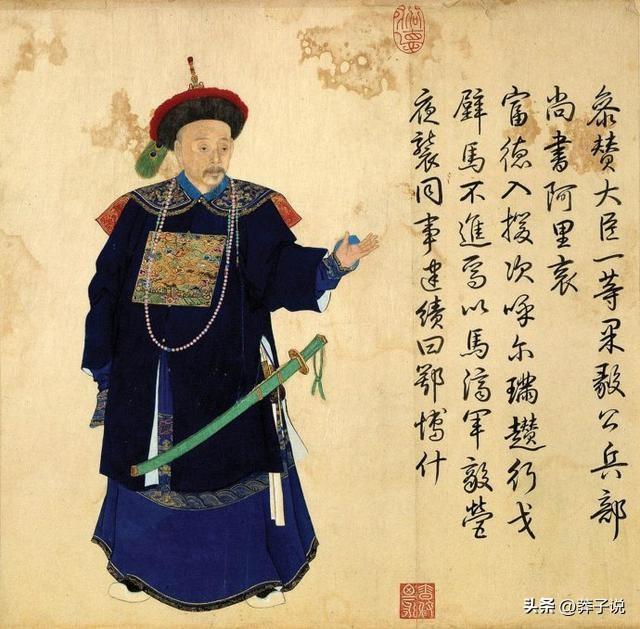 叅贊大臣一等果毅公兵部
尚書阿里衮
富德入援次呼尔璊趲行戈
壁馬不進焉以馬濟軍敵營
夜襲同事建績曰鄂博什
头条 @莽子说